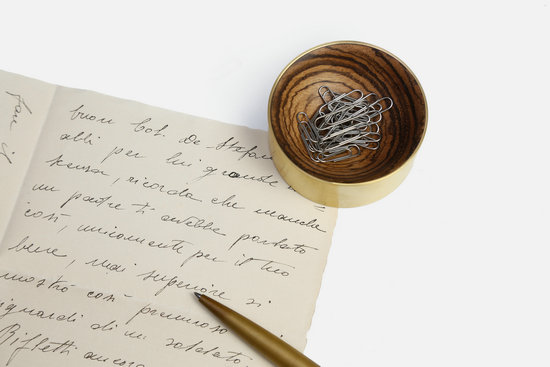 buon Col. De-Stefano
abbi per lui grande
senza, ricorda che neanche
un padre ti avrebbe parlato
così, unicamente per il tuo
bene, mai superiore si
mostrò così premuroso
riguardi di un soldato.
Rifletti ancora
fare il